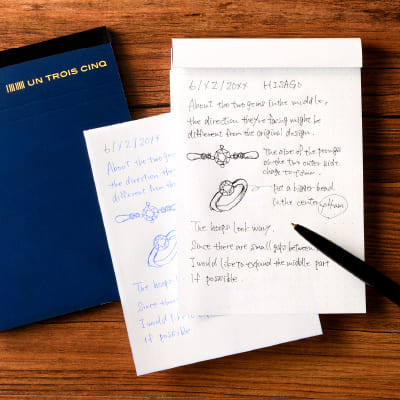 UN TROIS CINQ
6/XZ/20XX HISAGO
About the two gems in the middle,
the direction they're facing might be
different from the original design.
The size of the prongs
on the two outer side
change to 0.9mm.
put a bigger bead
in the center
The hoops look wavy.
Since there are small gaps between
I would like to expand the middle part
if possible.
6/XZ/20XX
About the two
the direction th
different from th
The hoops l
Since there
I would like to
if possible